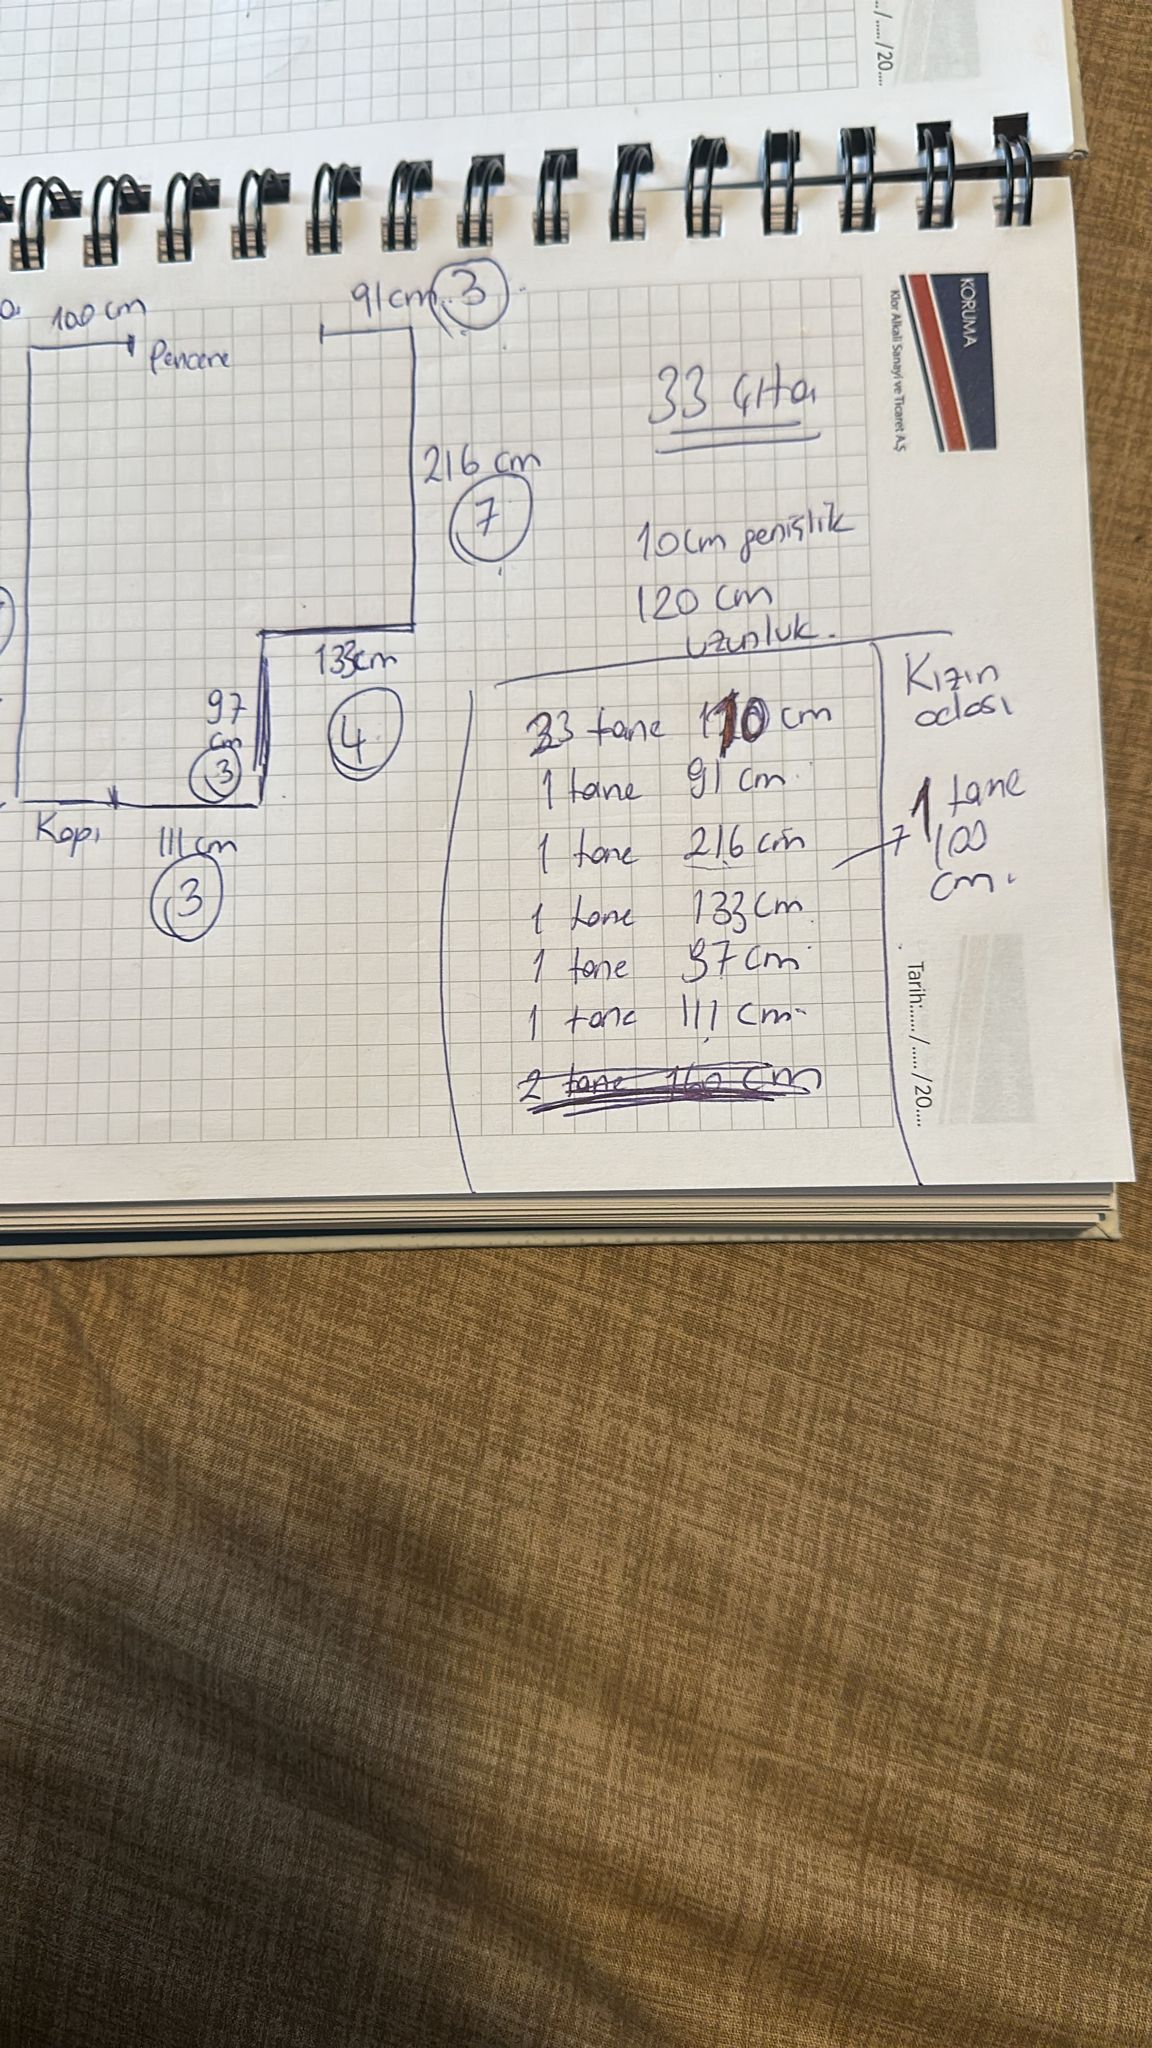 ..../...../20....
100 cm
Pencere
91 cm
3
216 cm
7
133cm
4
97
cm
3
Kapı
111 cm
3
KORUMA
Klor Alkali Sanayi ve Ticaret A.Ş
33 çıta
10cm genişlik
120 cm
uzunluk.
33 tane 110 cm
1 tane 91 cm
1 tane 216 cm
1 tane 133 cm
1 tane 97 cm
1 tane 111 cm
2 tane 160 cm
Kızın
odası
1 tane
100
cm.
Tarih:...../...../20....